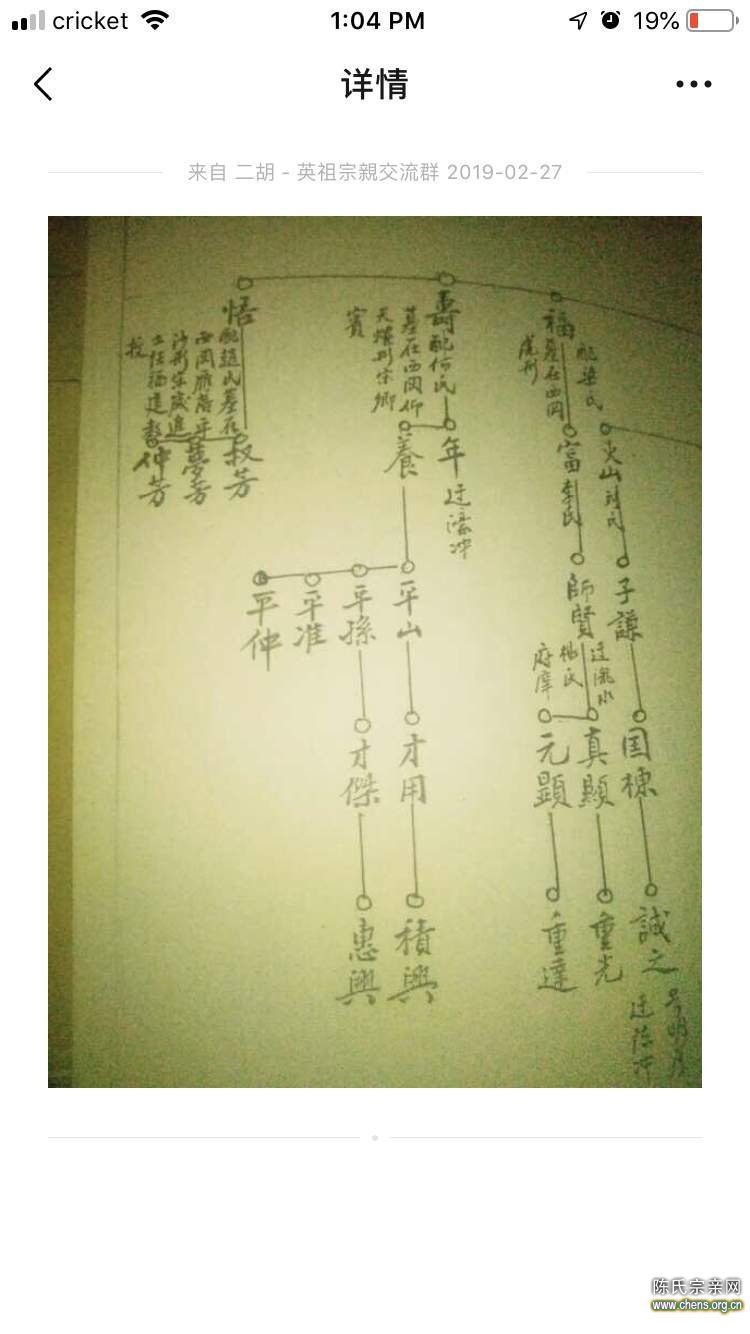 cricket
1:04 PM
19%
详情
来自 二胡 - 英祖宗親交流群 2019-02-27
配梁氏
福
墓在西岡
虎形
壽
配何氏
墓在西岡仰
天螺形宗鄉
賓
悟
配趙氏墓在
西岡雁落平
沙形宗歲進
士任福建教
授
火山
劉氏
富
李氏
年
迁濠冲
養
叔芳
夢芳
仲芳
子謙
師賢
迁滘水
楊氏
府庠
平山
平孫
平准
平仲
国棟
真顯
元顯
才用
才傑
誠之
号明月
迁陈冲
重光
重達
積興
惠興
陈氏宗亲网
www.chens.org.cn